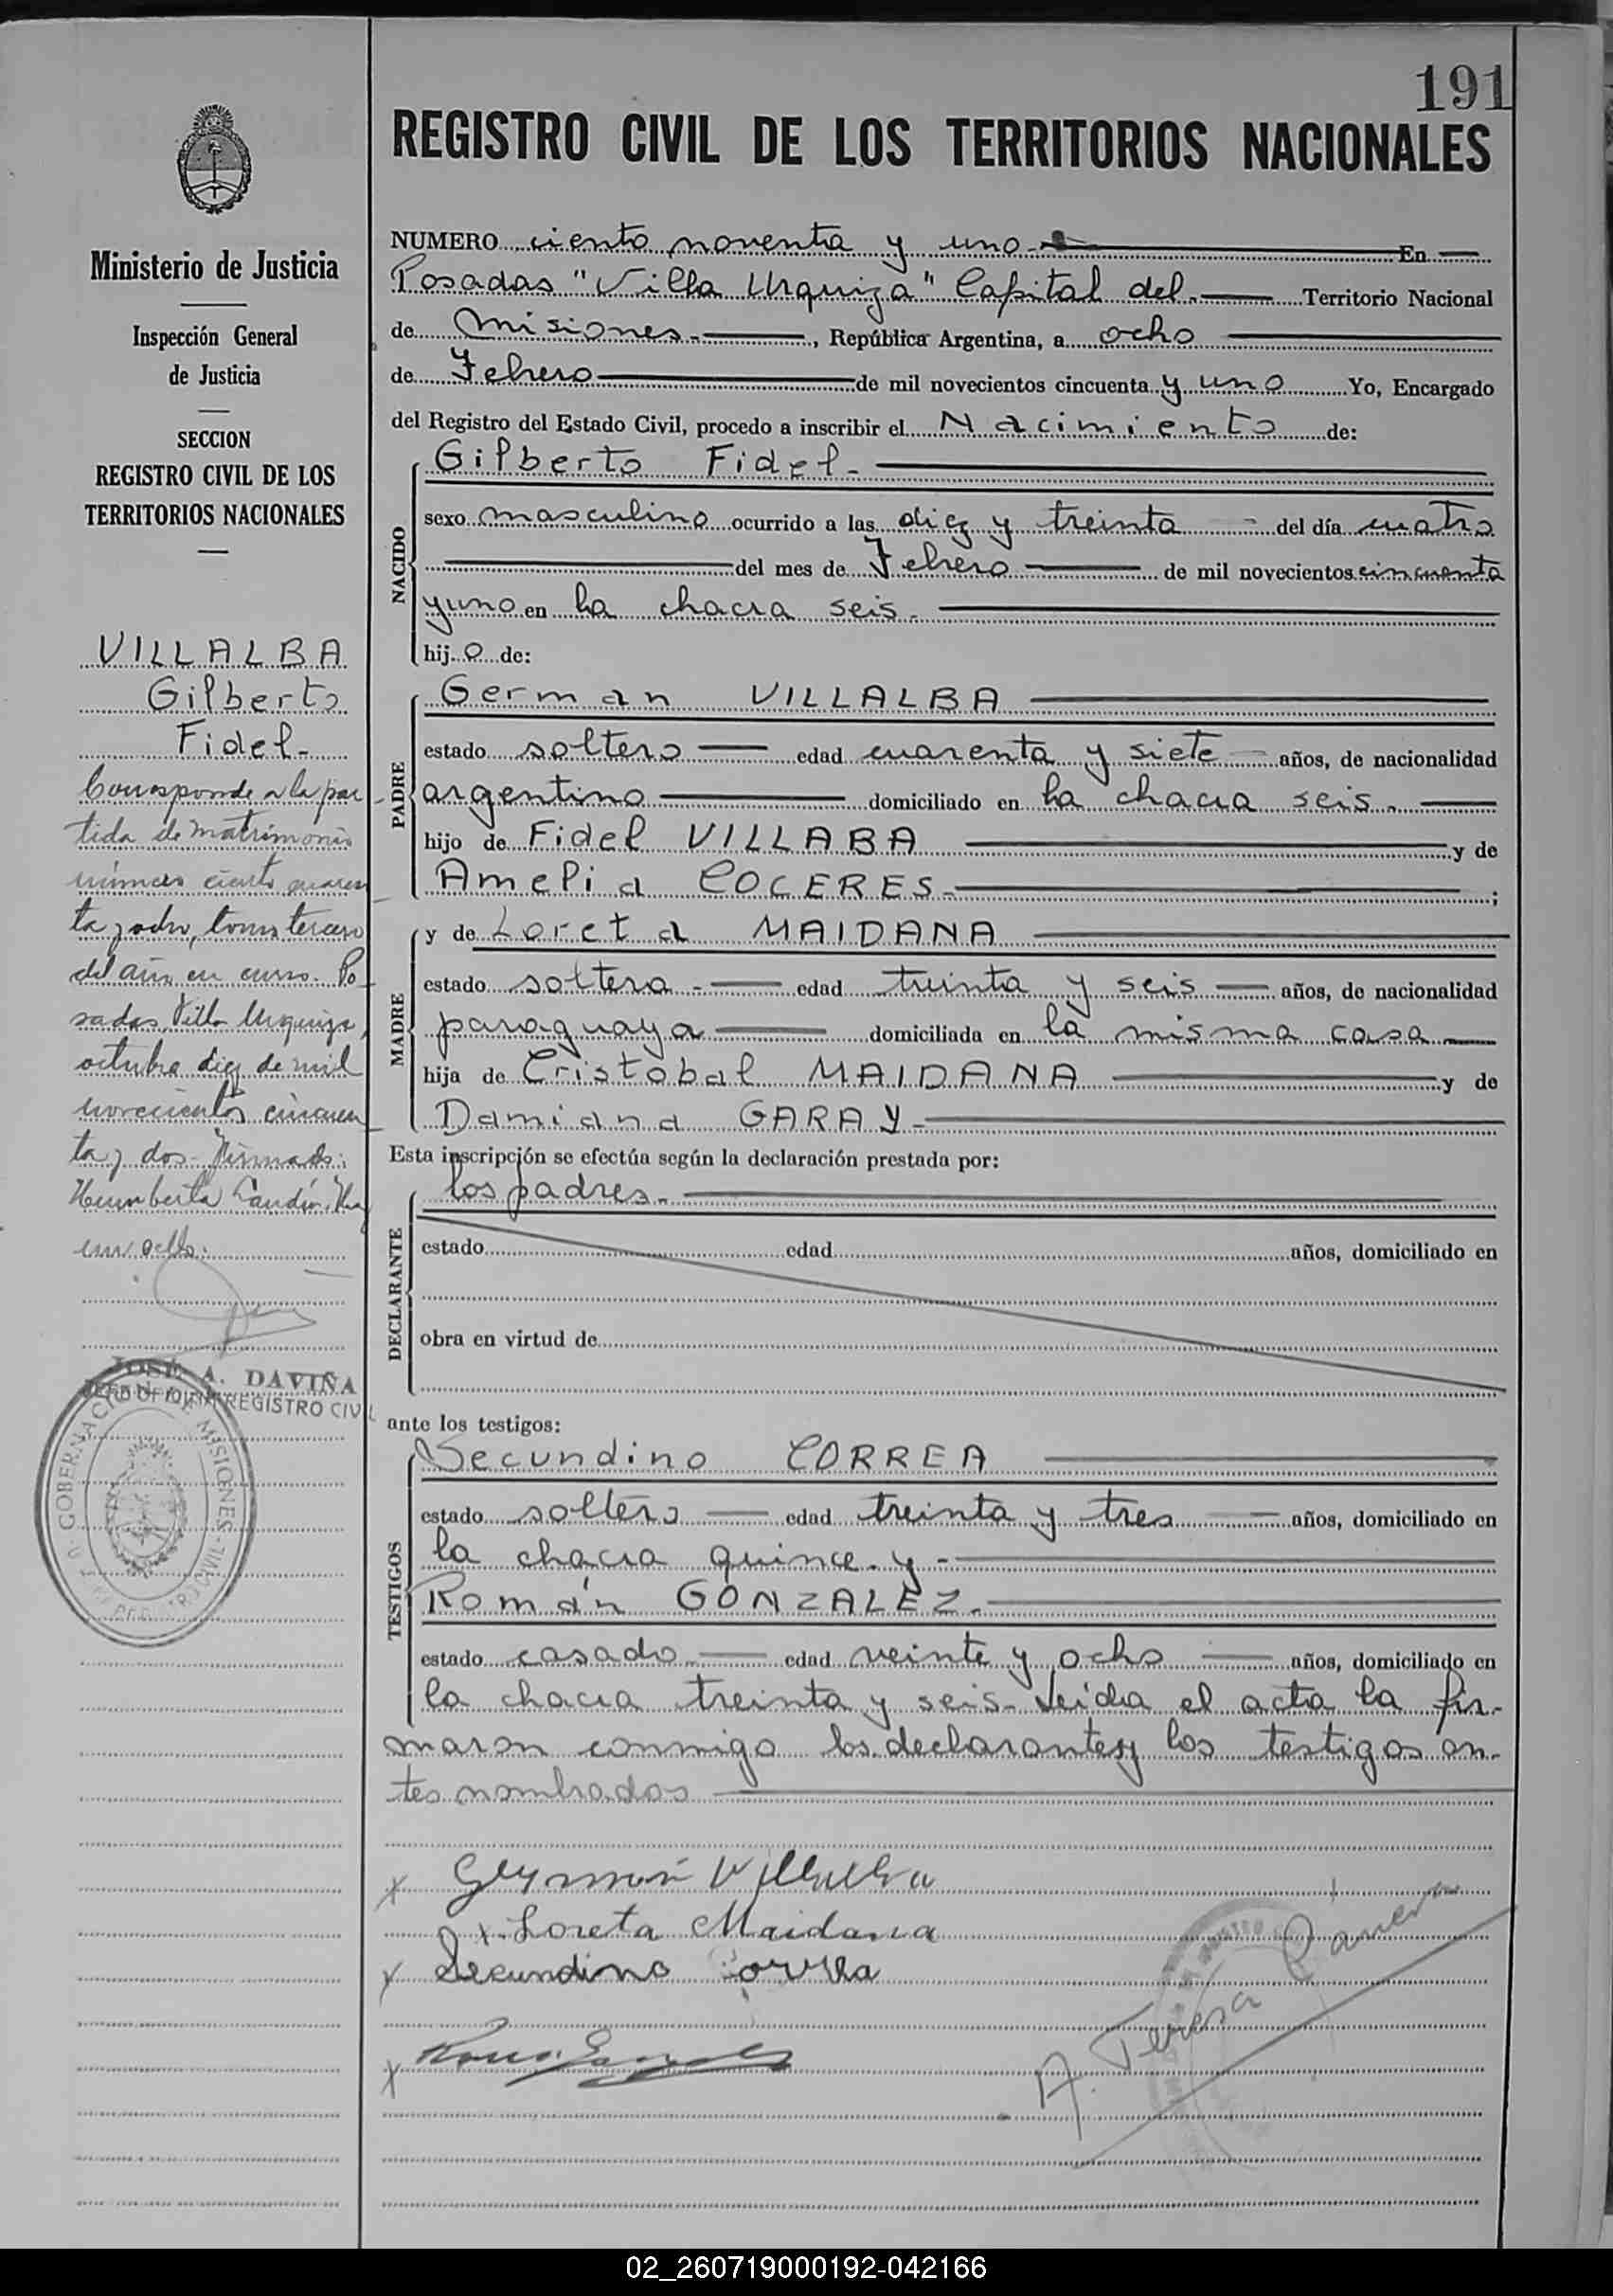 191
REGISTRO CIVIL DE LOS TERRITORIOS NACIONALES
Ministerio de Justicia
Inspección General
de Justicia
SECCION
REGISTRO CIVIL DE LOS
TERRITORIOS NACIONALES
VILLALBA
Gilberto
Fidel-
Corresponde a la par-
tida de matrimonio
número ciento cuaren-
ta y ocho, tomo tercero
del año en curso. Po-
sadas, Villa Urquiza,
octubre diez de mil
novecientos cincuen-
ta y dos- Firmado:
Humberto
JOSE A. DAVIÑA
JEFE OFICINA REGISTRO CIVIL
GOBERNACION DE MISIONES
NUMERO ciento noventa y uno.- En
Posadas "Villa Urquiza" Capital del.- Territorio Nacional
de Misiones.- , República Argentina, a ocho
de Febrero de mil novecientos cincuenta y uno Yo, Encargado
del Registro del Estado Civil, procedo a inscribir el Nacimiento de:
NACIDO
Gilberto Fidel.-
sexo masculino ocurrido a las diez y treinta del día cuatro
del mes de Febrero de mil novecientos cincuenta
y uno en la chacra seis.-
hijo de:
PADRE
German VILLALBA
estado soltero edad cuarenta y siete años, de nacionalidad
argentino domiciliado en la chacra seis.-
hijo de Fidel VILLABA y de
Amelia COCERES.- ;
MADRE
y de Loreta MAIDANA
estado soltera edad treinta y seis años, de nacionalidad
paraguaya domiciliada en la misma casa
hija de Cristobal MAIDANA y de
Damiana GARAY.-
Esta inscripción se efectúa según la declaración prestada por:
DECLARANTE
los padres.-
estado edad años, domiciliado en
obra en virtud de
ante los testigos:
TESTIGOS
Secundino CORREA
estado soltero edad treinta y tres años, domiciliado en
la chacra quince y -
Román GONZALEZ.-
estado casado edad veinte y ocho años, domiciliado en
la chacra treinta y seis- Leída el acta la fir-
maron conmigo los declarantes y los testigos an-
tes nombrados
x Germán Villalba
x Loreta Maidana
x Secundino Correa
x
A. Teresa
02_260719000192-042166